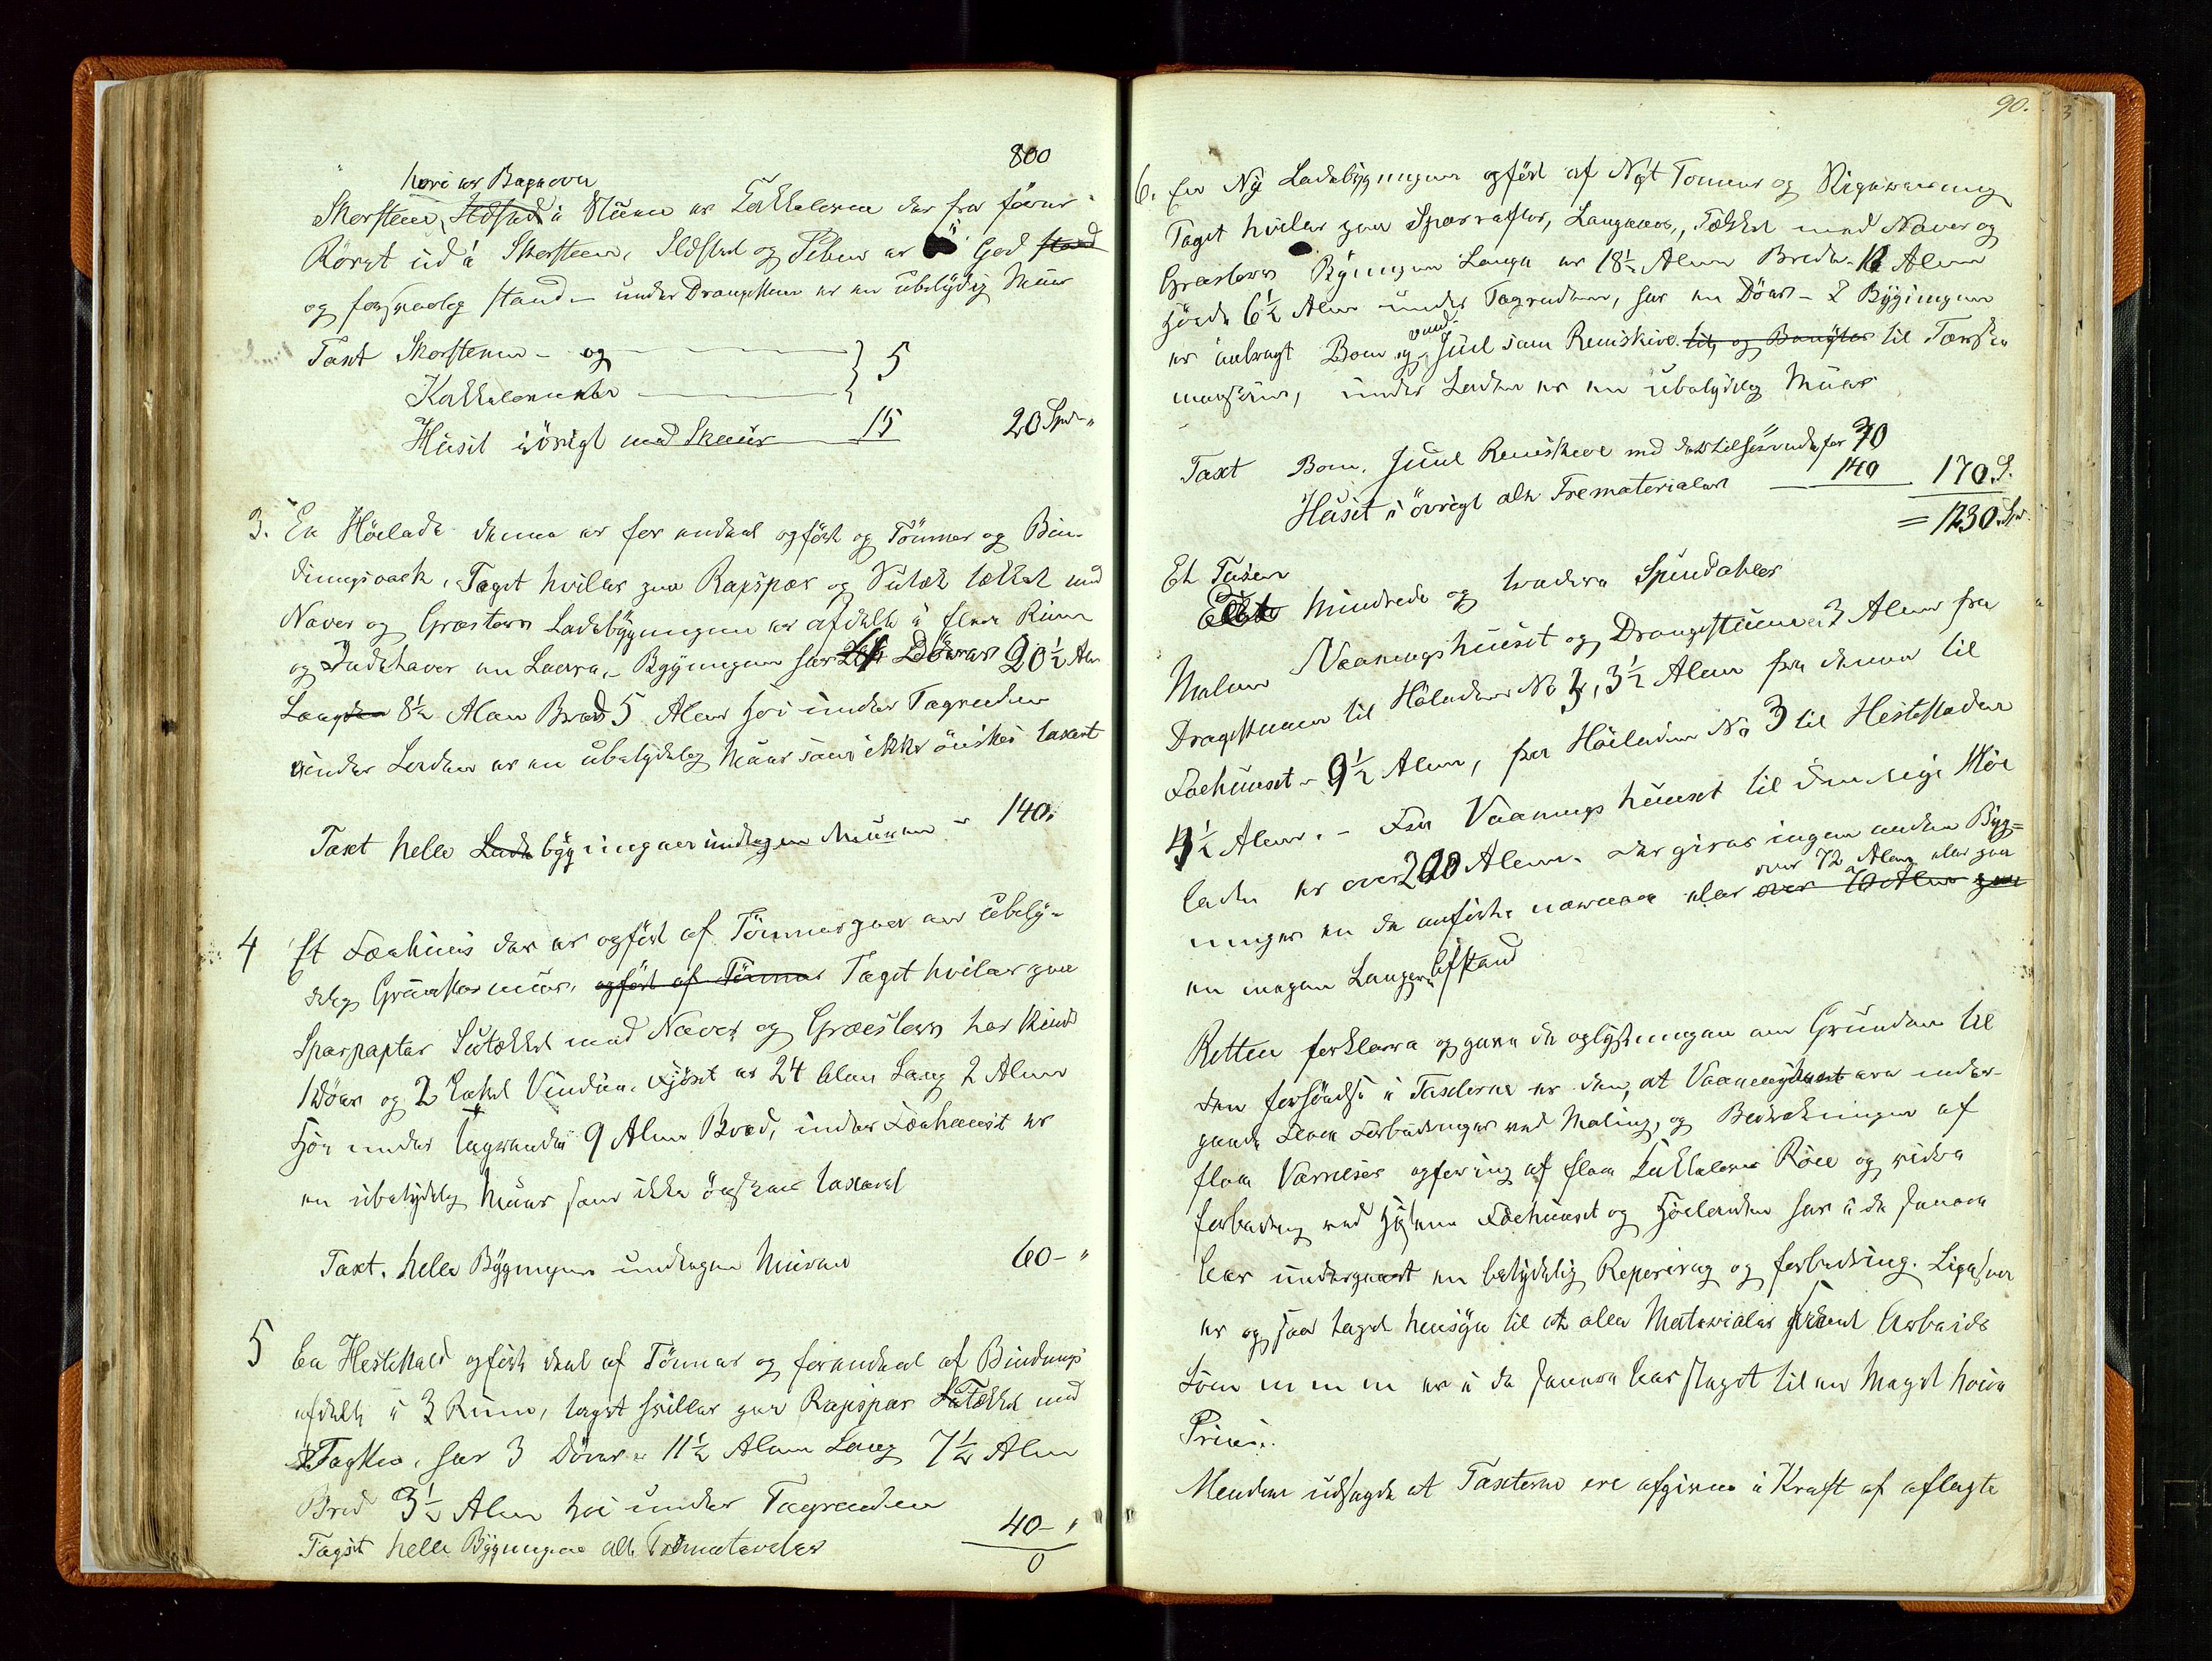 800
hvori er Bagerovn
Skorsteen, Ildsted i Stuen er Kakkelovn der fra förer
Röret ud i Skorsteen, Ildsted og Piben er i God stand
og forsvarlig stand – under Drangstuen er en übetÿdig Muur
Taxt Skorstenen – og } 5
Kakkelovnene
Huset iövrigt med Skuur 15 20 Spd "
3. En Höelade denne er for endeel opfört og Tömmer og Bin-
dingsværk, Taget hviler paa Rapspær og Sutæk tækket med
Næver og Græstorv Ladebÿgningen er afdeelt i flere Rum
og Indehaver en Laave, – Bÿgningen har 4 Dörer 20½ Alen
Langden 8½ Alen Bred 5 Alen höi under Tagrenden
under Laden er en übetÿdelig Muur som ikke önskes taxert
Taxt hele Ladebÿgningen undtagen Muuren – 140.
4 Et Fæehuus der er opfört af Tömmer paa en übetÿ-
delig Graasteens muur, opfört af Tömmer Taget hviler paa
Sparrapter Sutækket med Næver og Græstorv har
1 Döer og 2 Enkel Vinduer. Fjöset er 24 Alen Lang 2 Alen
Höi under tagrenden 9 Alen Bred, under Fæehuuset er
en übetÿdelig Muur som ikke önskes taxeret
Taxt. hele Bÿgningen undtagen Muren 60 – "
5 En Hestestald opfört deel af Tömmer og forendeel af Bindings
afdeelt i 3 Rum, taget hviller paa Rapspær Sutækket med
Tagsten, har 3 Dörer – 11½ Alen Lang 7½ Alen
Bred 3½ Alen höi under Tagrenden
Taxt hele Bÿgningen alle Træmaterialer 40 – "
0
90.
6. En Nÿ Ladebÿgningen opfört af Nÿt Tömmer og
Taget hviler paa Sparrafter, Tækket med Næver og
Græstorv Bÿgningen Længe er 18½ Alen Brede 12 Alen
Höide 6½ Alen under Tagrenden, har en Döer – I Bÿgningen
er anbragt Bom og vand Juul som Remskive til og til Tærske
maskine, under Laden er en übetÿdelig Muur
Taxt Bom, Juul Remskive med dertilhörende for 30
Huset i övrigt alle Træmaterialer 140 170. S.
= 1230. Spd.
Et Tusen
To Hundrede og tredive Speciedaler
Mellem Vaaningshuuset og Drangstuen er 3 Alen fra
Drangstuen til Höeladen No 3, 3½ Alen fra denne til
Foehuuset – 9½ Alen, fra Höeladen No 3 til Hestestalden
4½ Alen. – Fra Vaaningshuuset til den nÿe Höe
laden er over 200 Alen. der gives ingen anden Bÿg=
ninger en de anförte nærmere eller over 72 Alen eller paa
en megen Længere Afstand
Retten forklarer og gave de oplÿsningen om Grunden til
den forhöielse i Taxterne er den, at Vaaningshuset ere under-
gaaet flere Forbedringer ved Maling, og Beklædningen af
flere Værelser opföring af flere Kakkelovne Röer og videre
forbedring ved Fæehuuset og Höeladen har i de senere
Aar undergaaet en betÿdelig Reperering og forbedring. Ligesom
er ogsaa taget hensÿn til at alle Materialer samt Arbeids
Lönnen er i de senere Aar steget til en Meget höie
Priis.
Mendene udsagde at Taxterne ere afgivne i Kraft af aflagte